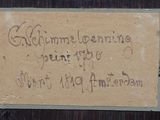 G. Schimmelpenning
pein: 1790
Mort 1819 Amsterdam